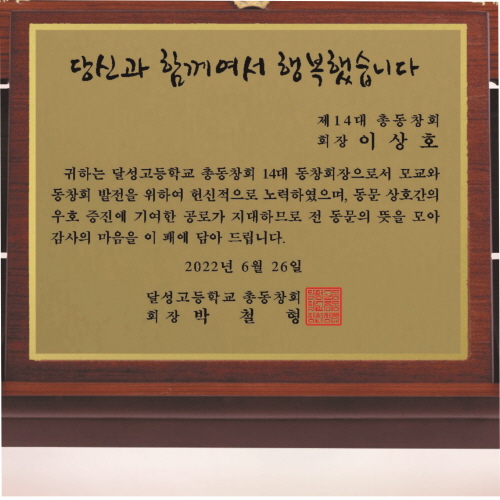 당신과 함께여서 행복했습니다
제14대 총동창회
회장 이상호
귀하는 달성고등학교 총동창회 14대 동창회장으로서 모교와
동창회 발전을 위하여 헌신적으로 노력하였으며, 동문 상호간의
우호 증진에 기여한 공로가 지대하므로 전 동문의 뜻을 모아
감사의 마음을 이 패에 담아 드립니다.
2022년 6월 26일
달성고등학교 총동창회
회장 박철형